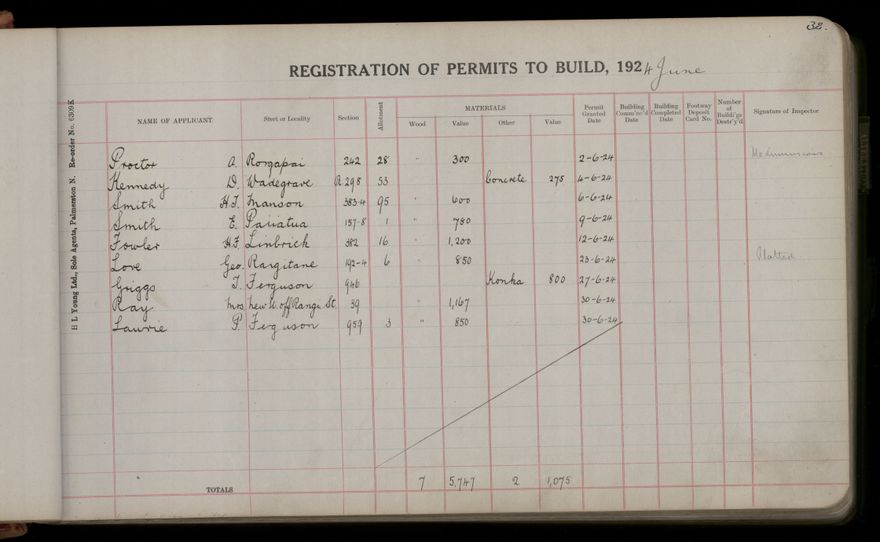 32.
REGISTRATION OF PERMITS TO BUILD, 1924 June
H L Young Ltd., Sole Agents, Palmerston N. Re-order No. 6309K
NAME OF APPLICANT Street or Locality Section Allotment MATERIALS Wood Value Other Value Permit Granted Date Building Comm'nc'd Date Building Completed Date Footway Deposit Card No. Number of Buildi'gs Destr'y'd Signature of Inspector
Proctor A. Rongapai 242 28 " 300 2-6-24
Kennedy D. Wadegrave R 298 53 Concrete 275 4-6-24
Smith H.J. Manson 383-4 95 " 600 6-6-24
Smith E. Pahiatua 157-8 1 " 780 9-6-24
Fowler H.F. Limbrick 382 16 " 1,200 12-6-24
Love Geo. Rangitane 192-4 6 " 850 23-6-24 Platted
Griggs J. Ferguson 946 Konka 800 27-6-24
Ray Mrs New St. off Range St. 39 " 1,167 30-6-24
Lawrie P. Ferguson 959 3 " 850 30-6-24
TOTALS 7 5,747 2 1,075